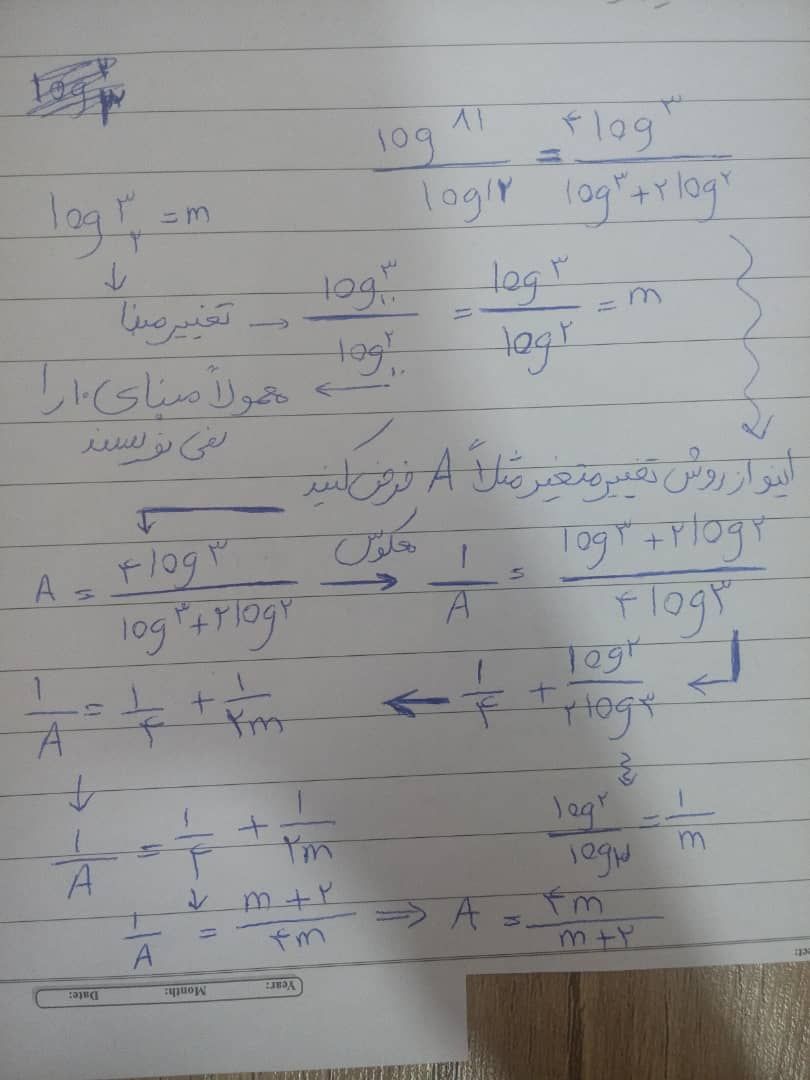 log ۸۱ / log ۱۲ = ۴ log ۳ / (log ۳ + ۲ log ۲)
log₂ ۳ = m
تغییر مبنا → log₁₀ ۳ / log₁₀ ۲ = log ۳ / log ۲ = m
معمولاً مبنای ۱۰ را
نمی نویسند
اینو از روش تغییر متغیر مثلاً A فرض کنید
A = ۴ log ۳ / (log ۳ + ۲ log ۲) معکوس → ۱/A = (log ۳ + ۲ log ۲) / ۴ log ۳
۱/A = ۱/۴ + ۱/۲m ← ۱/۴ + log ۲ / ۲ log ۳
۱/A = ۱/۴ + ۱/۲m
log ۲ / log ۳ = ۱/m
۱/A = (m + ۲) / ۴m ⇒ A = ۴m / (m + ۲)
Year: Month: Date: